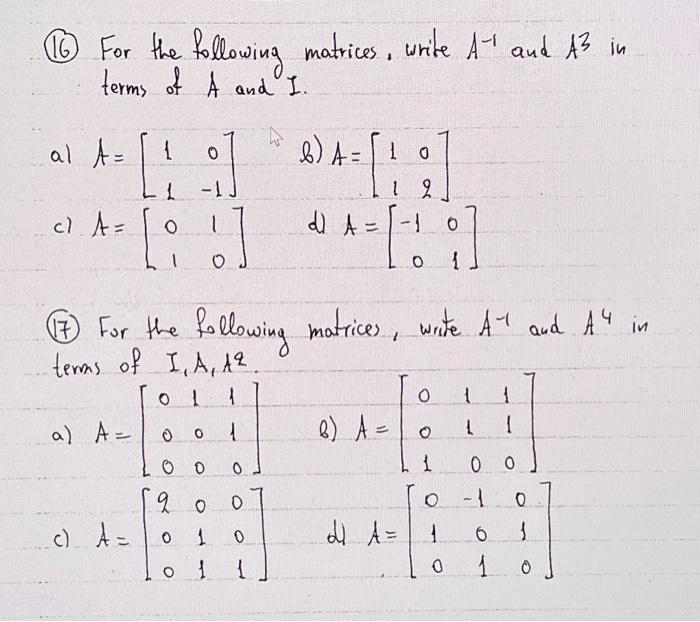 (16) For the following matrices, write A⁻¹ and A³ in
terms of A and I.
a) A = [ 1 0 ; 1 -1 ] b) A = [ 1 0 ; 1 2 ]
c) A = [ 0 1 ; 1 0 ] d) A = [ -1 0 ; 0 1 ]
(17) For the following matrices, write A⁻¹ and A⁴ in
terms of I, A, A².
a) A = [ 0 1 1 ; 0 0 1 ; 0 0 0 ] b) A = [ 0 1 1 ; 0 1 1 ; 1 0 0 ]
c) A = [ 2 0 0 ; 0 1 0 ; 0 1 1 ] d) A = [ 0 -1 0 ; 1 0 1 ; 0 1 0 ]